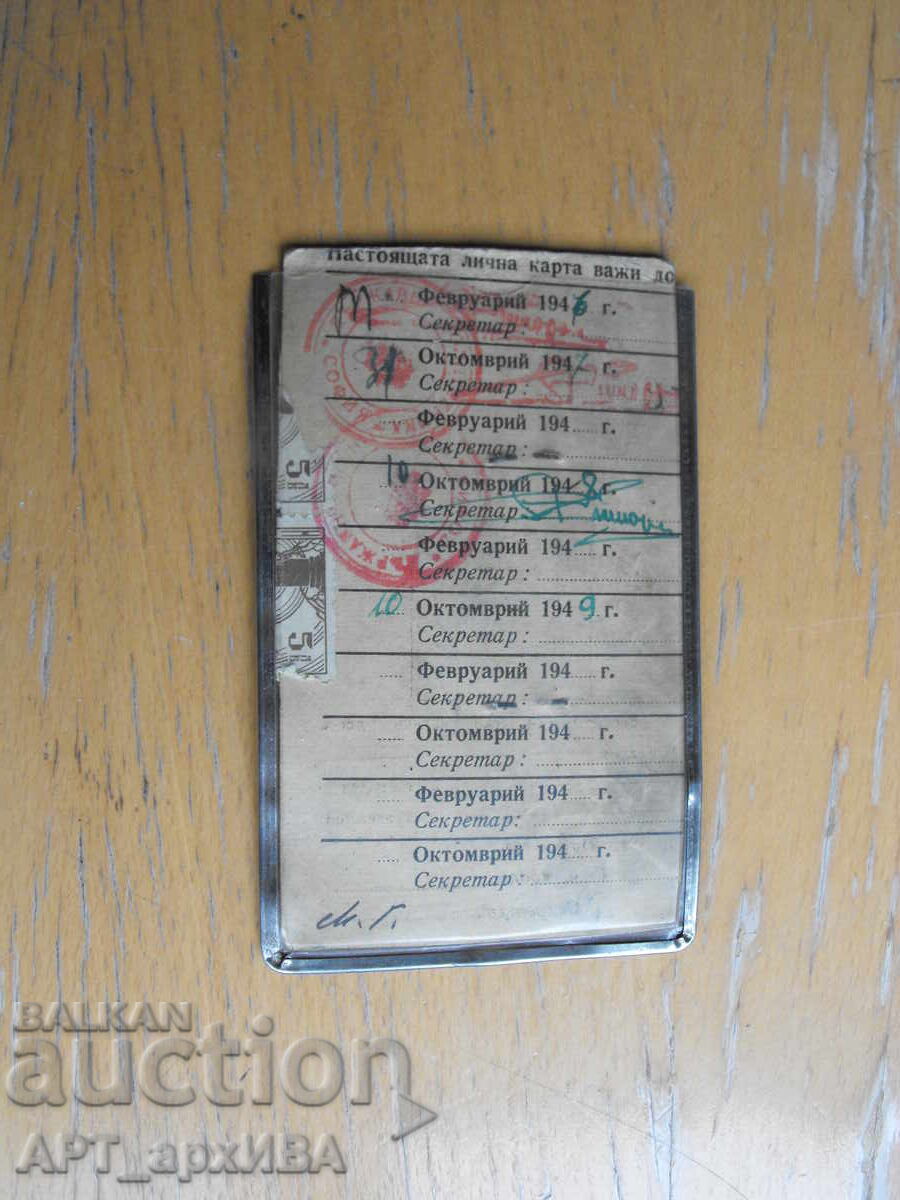 Настоящата лична карта важи до
Февруарий 1946 г.
Секретар:
Октомврий 1947 г.
Секретар:
Февруарий 194..... г.
Секретар:
10 Октомврий 1948 г.
Секретар
Февруарий 194..... г.
Секретар:
10 Октомврий 1949 г.
Секретар:
Февруарий 194..... г.
Секретар:
Октомврий 194..... г.
Секретар:
Февруарий 194..... г.
Секретар:
Октомврий 194..... г.
Секретар:
М. Г.
5Л
5Л
BALKAN
auction
АРТ_архИВА